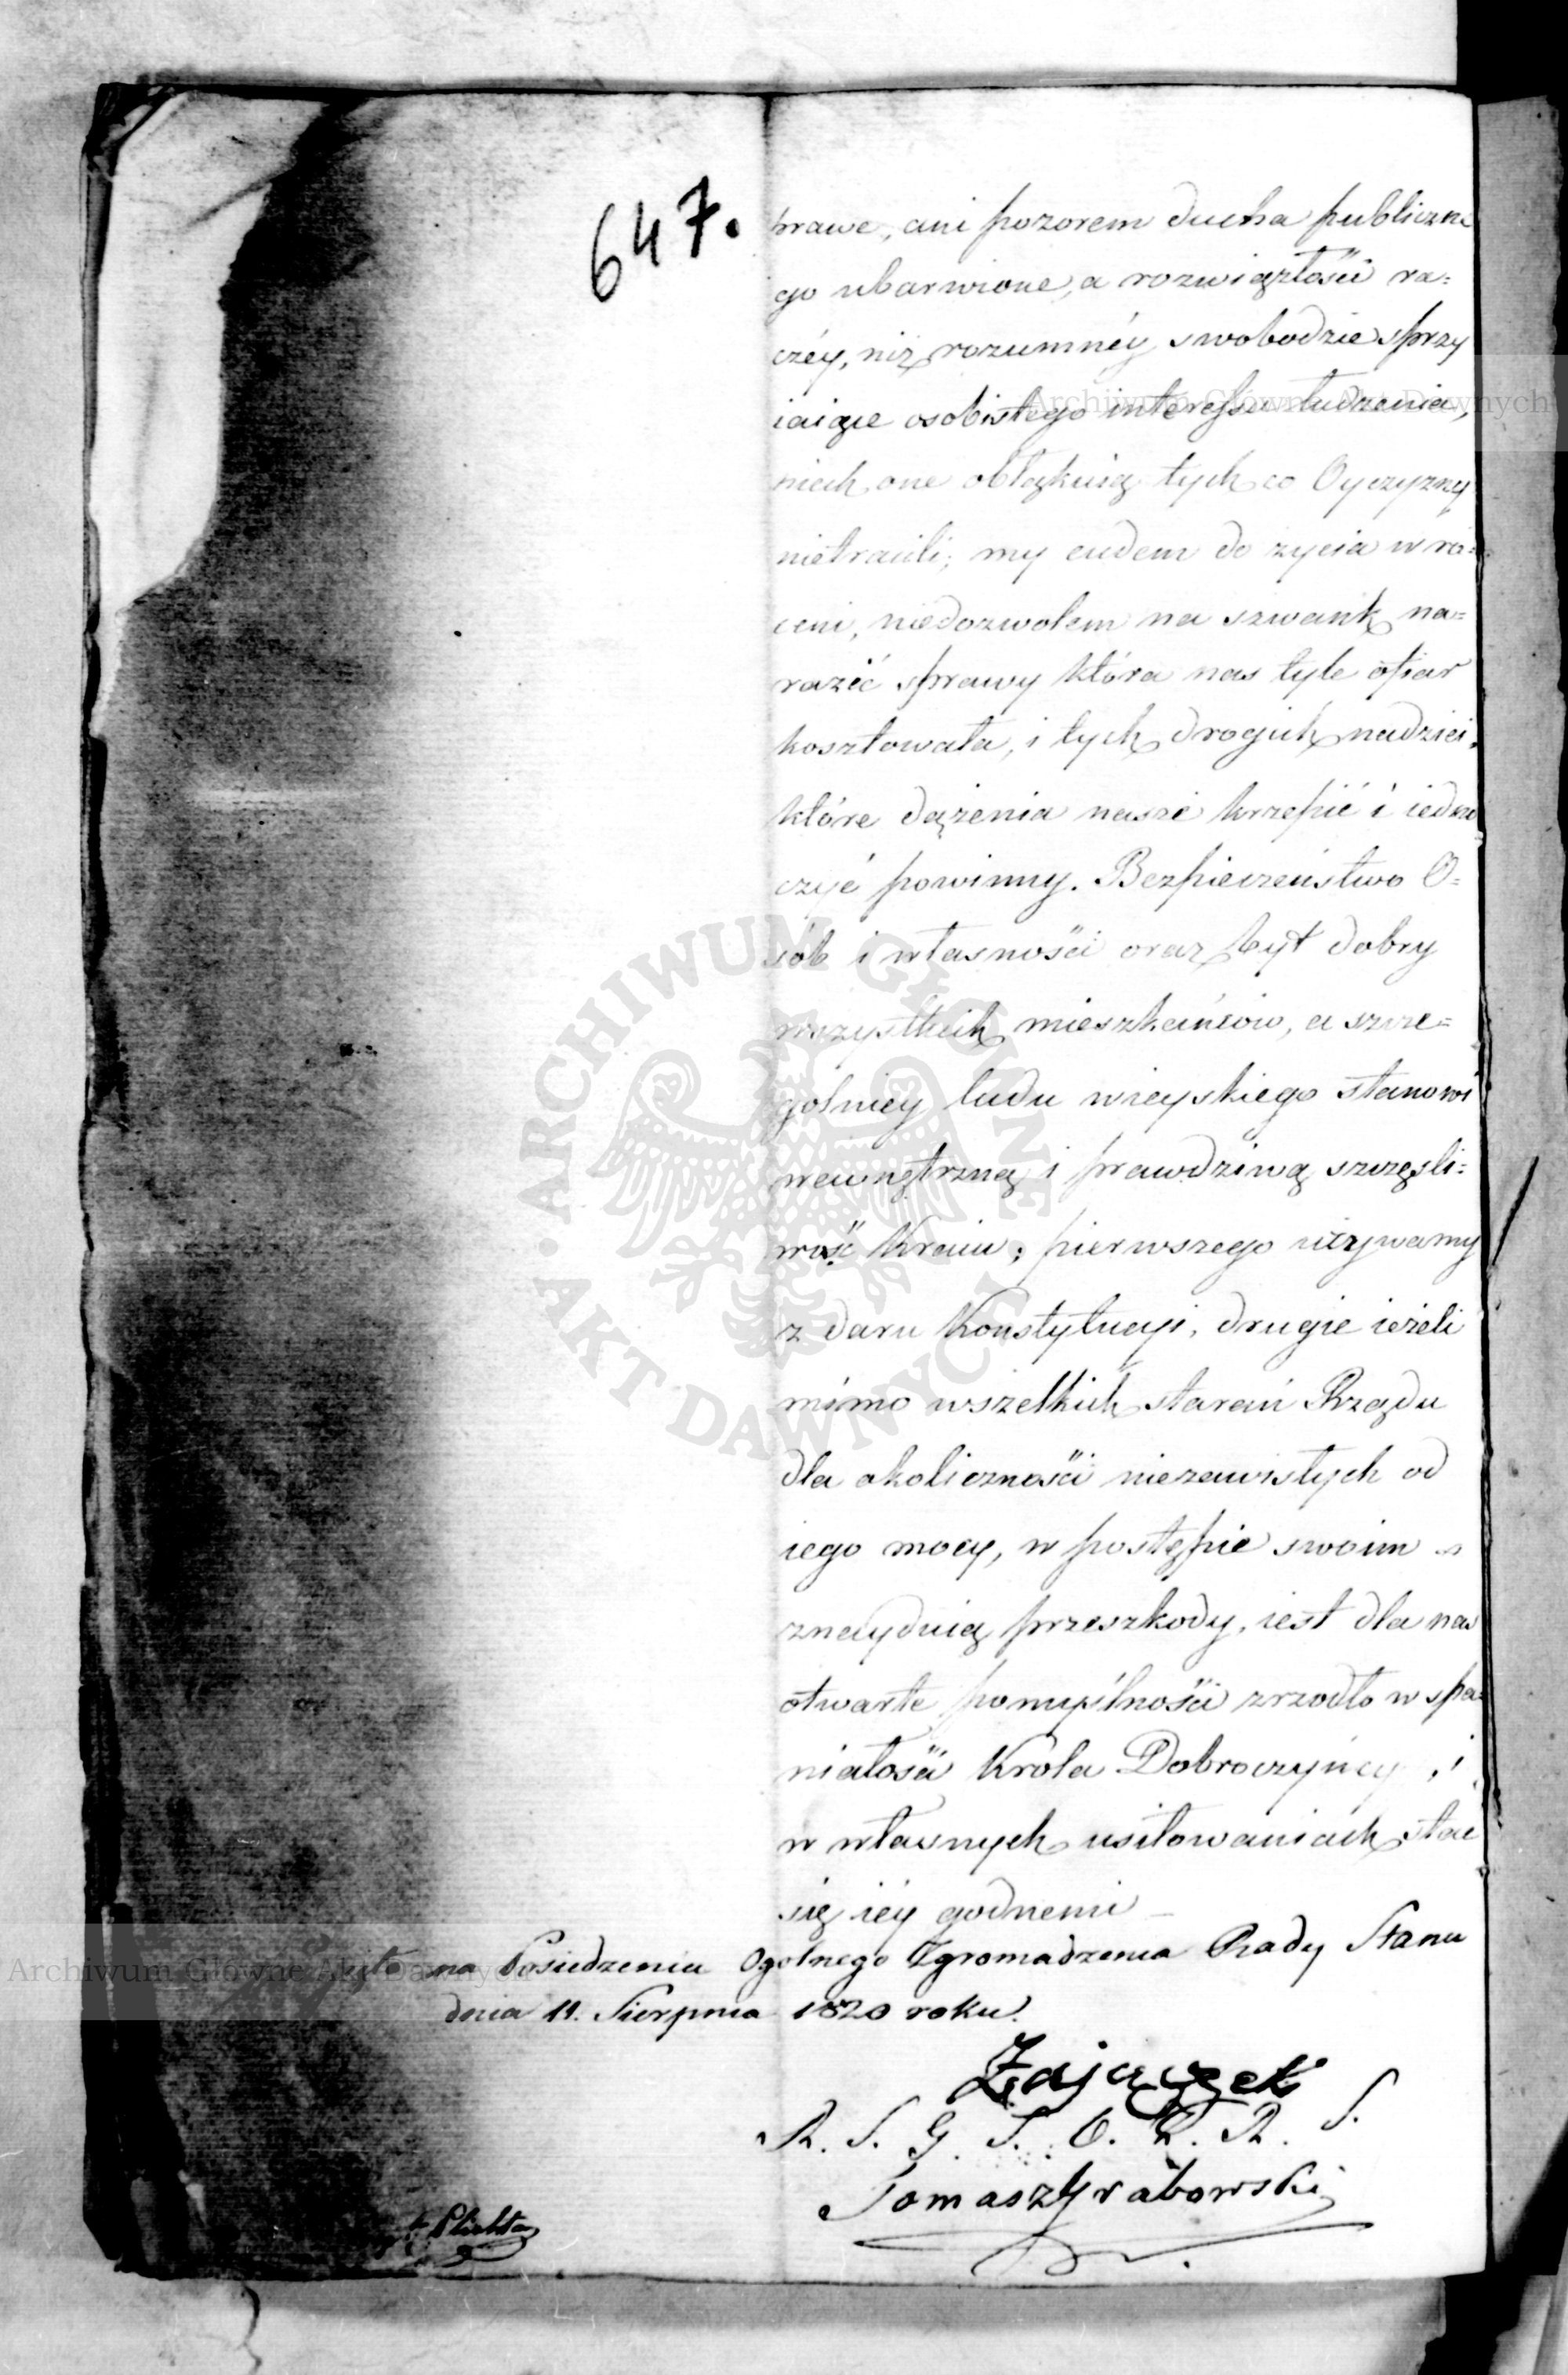 647.
prawe, ani pozorem ducha publiczne
go ubarwione, a rozwiązłości ra=
czéy, niż rozumnéy swobodzie sprzy
iaiące osobistego interessu łudzenia,
niech one obłąkuią tych co Oyczyzny
nietracili; my cudem do zycia wró=
ceni, niedozwolem na szwank na=
razić sprawy która nas tyle ofiar
kosztowała, i tych drogich nadziei,
które dążenia nasze krzepić i iedno
czyć powinny. Bezpieczeństwo O=
sób i własności oraz byt dobry
wszystkich mieszkańców, a szcze=
golniey ludu wieyskiego stanowi
wewnętrzną i prawdziwą szczęśli=
wość Kraiu; pierwszego używamy
z daru Konstytucyi, drugie ieżeli
mimo wszelkich starań Rządu
dla okoliczności niezawisłych od
iego mocy, w postępie swoim
znayduią przeszkody, iest dla nas
otwarte pomyślności zrzodło w spa=
niałości Króla Dobroczyńcy, i
w własnych usiłowaniach stać
się iéy godnemi
na Posiedzeniu Ogolnego Zgromadzenia Rady Stanu
dnia 11. Sierpnia 1820 roku.
Zajączek
R. S. G. S. O. Z. R. S.
Tomasz Grabowski
Plichta
Archiwum Główne Akt Dawnych
Archiwum Główne Akt Dawnych
ARCHIWUM GŁÓWNE · AKT DAWNYCH ·